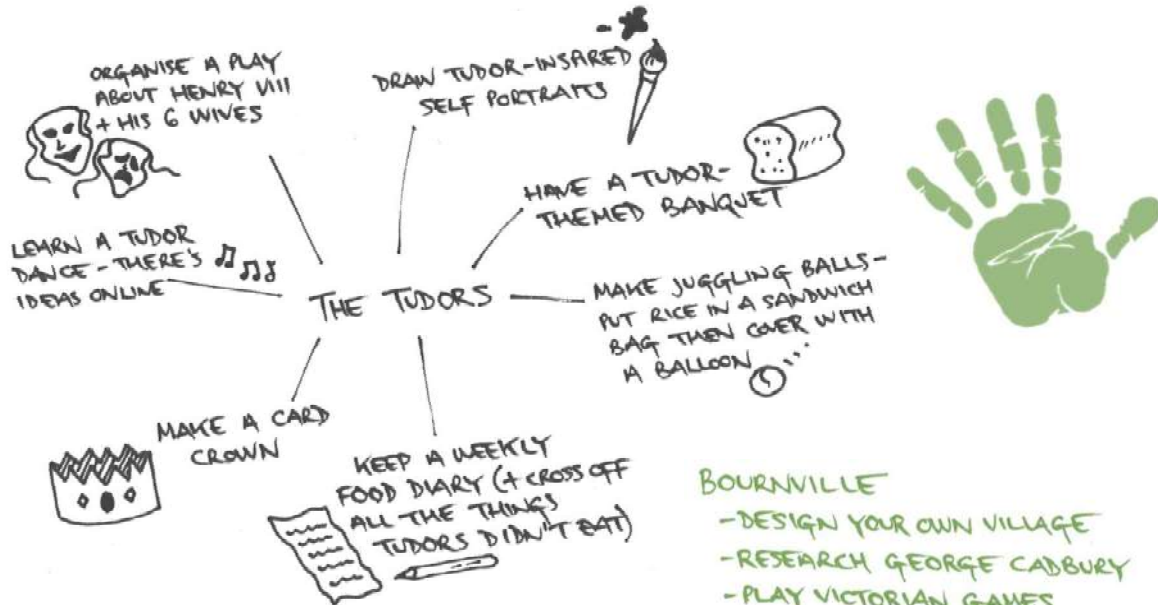 ORGANISE A PLAY
ABOUT HENRY VIII
+ HIS 6 WIVES
DRAW TUDOR-INSPIRED
SELF PORTRAITS
HAVE A TUDOR-
THEMED BANQUET
LEARN A TUDOR
DANCE - THERE'S
IDEAS ONLINE
THE TUDORS
MAKE JUGGLING BALLS-
PUT RICE IN A SANDWICH
BAG THEN COVER WITH
A BALLOON
MAKE A CARD
CROWN
KEEP A WEEKLY
FOOD DIARY (+ CROSS OFF
ALL THE THINGS
TUDORS DIDN'T EAT)
BOURNVILLE
-DESIGN YOUR OWN VILLAGE
-RESEARCH GEORGE CADBURY
-PLAY VICTORIAN GAMES